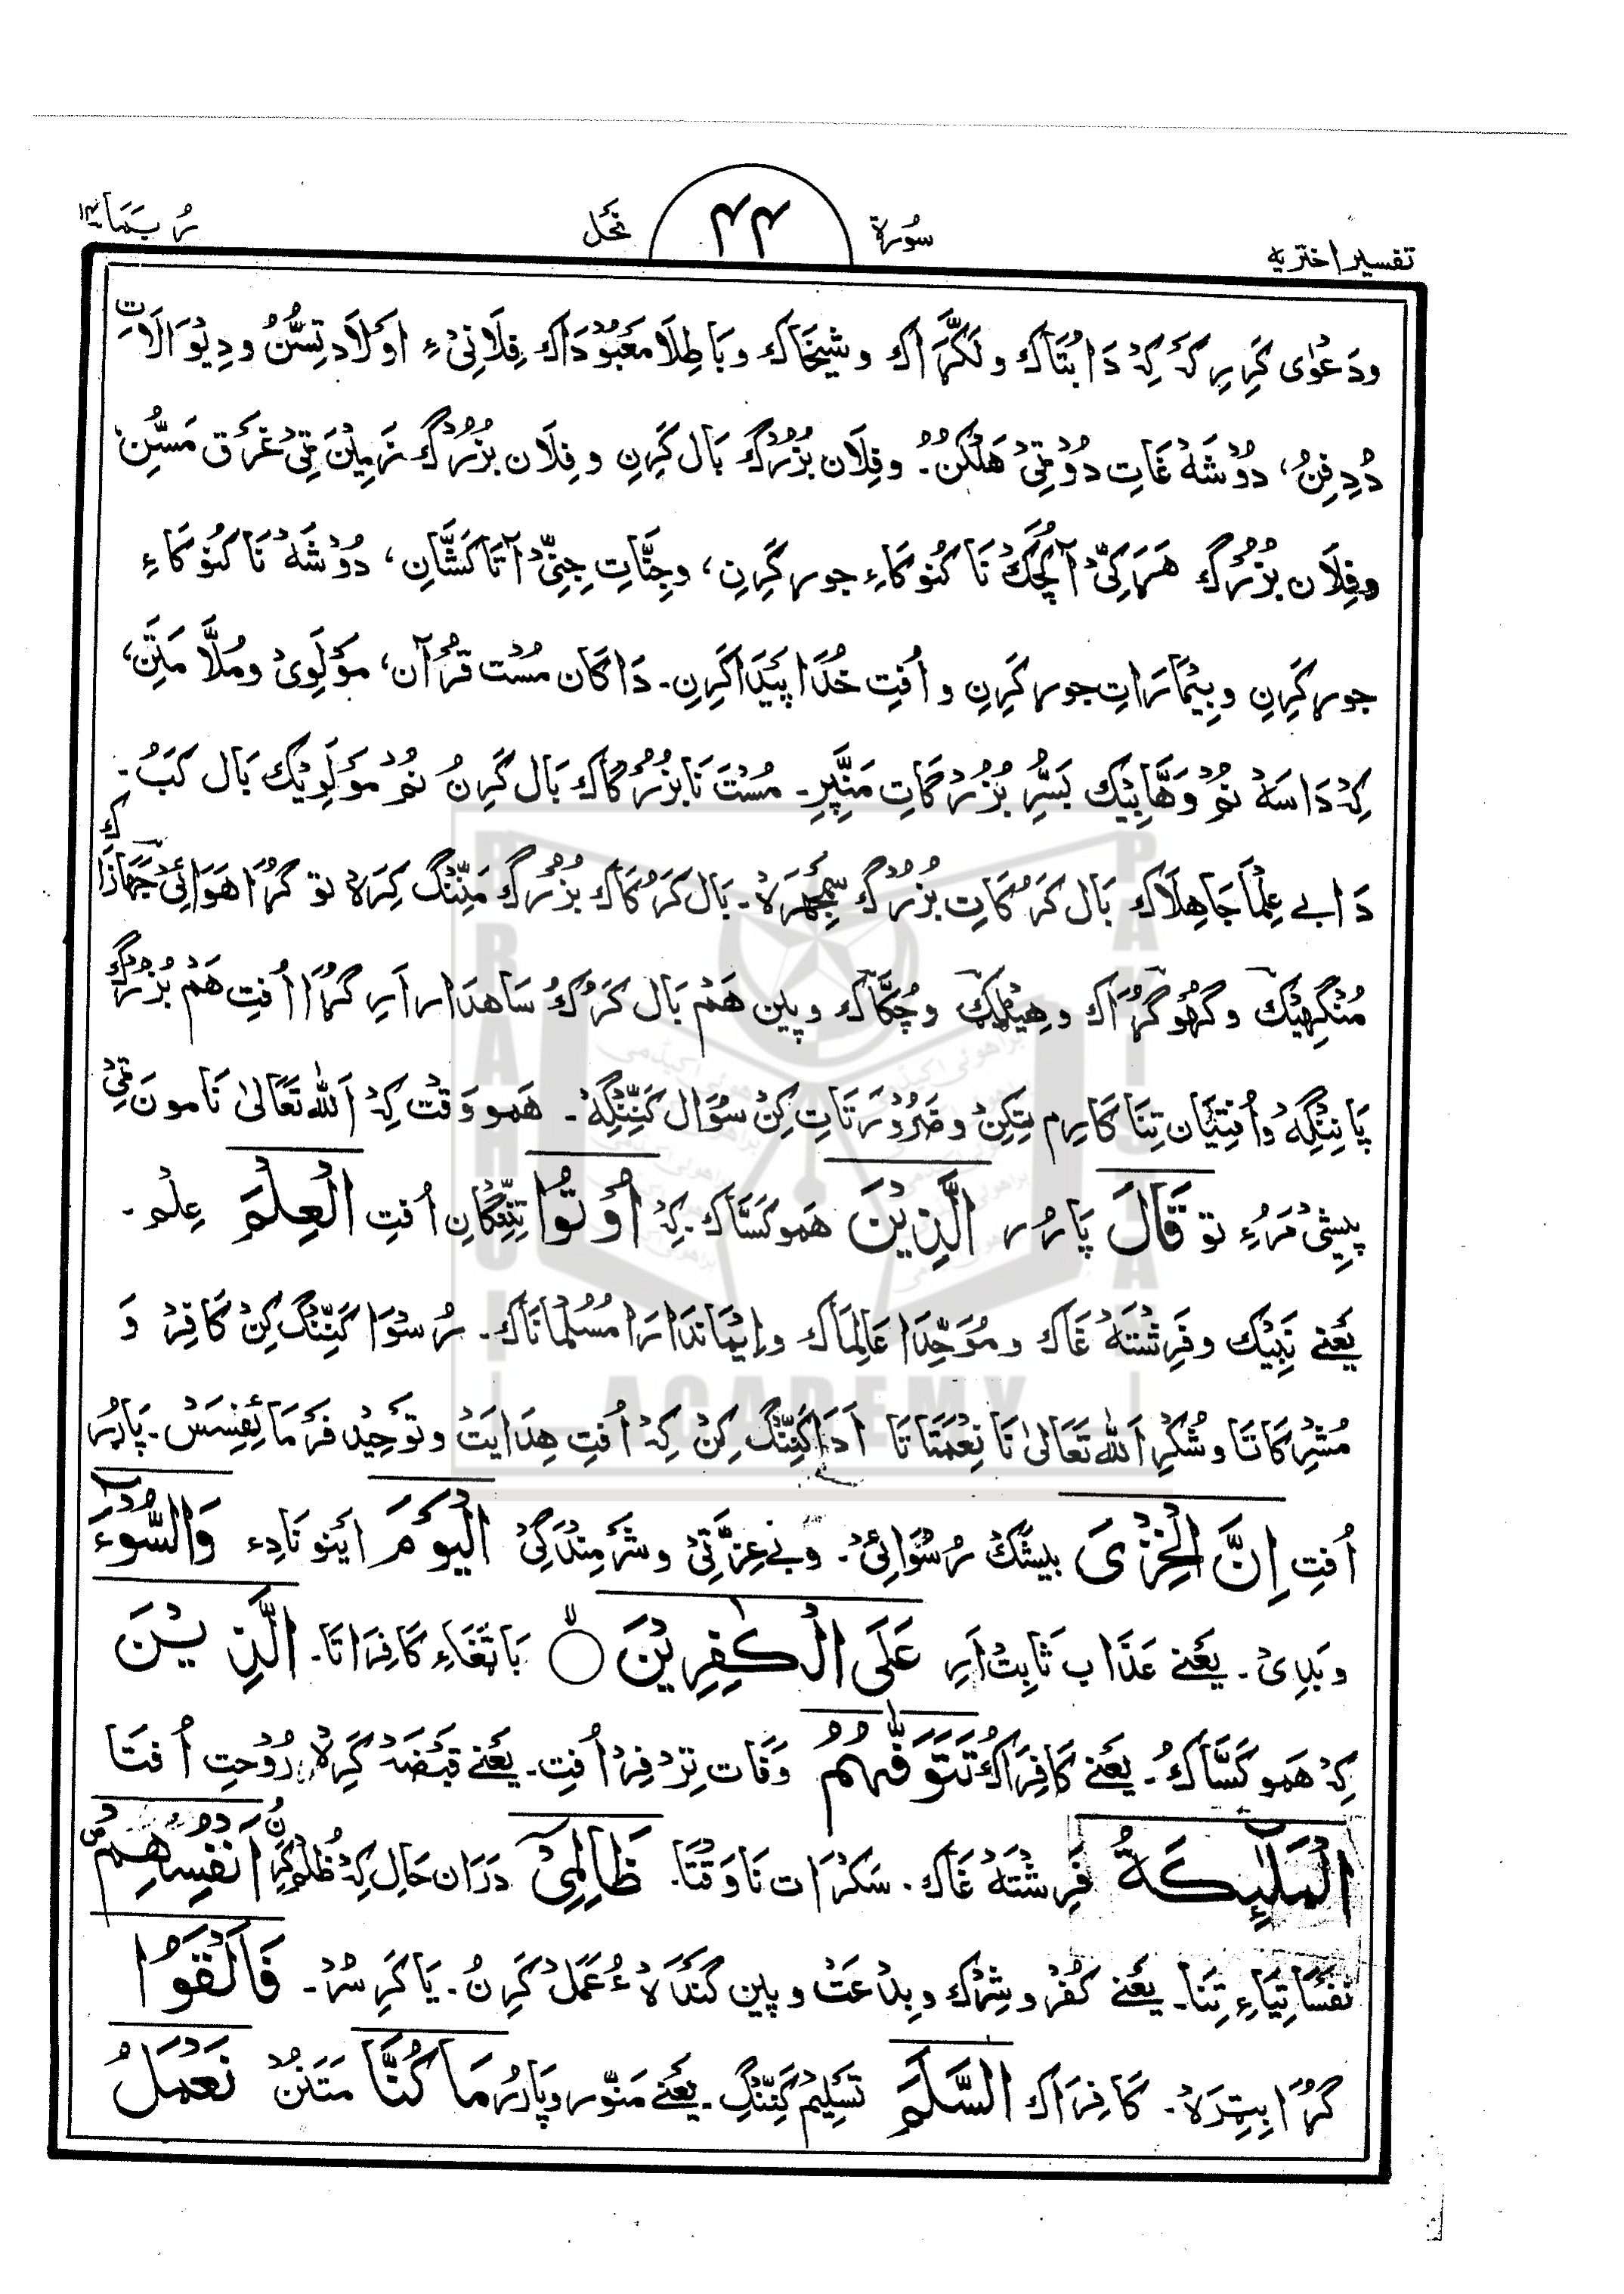 تفسیر اختریه
سُورة
۴۴
نَحل
رُبَمَا ۱۴
ودَعوٰی کَرِیرکہ کِہ دَا بُتَّاک ولَکَّرَاک وشَیخَاک وبَاطِلَا مَعبُودَاک فِلَانِیْ ءِ اَولَاد تِسُّنُ ودِیوَالَاتِ
دُدِفِنُ، دُوْشَهْ غَاتِ دُوْتِیْ هَلْکُنُ۔ وفِلَان بُزُرْگ بَال کَرِنِ وفِلَان بُزُرْگ زَمِیْنَ تِیْ غَرَق مَسُّنِ
وفِلَان بُزُرْگ هَرَکِیْ آ لُچُّک نَا کُنو کَاءِ جور کَرِنِ، وجِنَّاتِ جِنِّیْ آتَا کَشَّانِ، دُوْشَهْ نَا کُنو کَاءِ
جور کَرِنِ وبِیْمَارَاتِ جور کَرِنِ و اُفتِ خُدَا پَیْدَا کَرِنِ۔ دَاکَان مُسْت قُرْآن، مَولَوِیْ ومُلَّا مَتَنِ،
کِہ دَاسَہْ نُمْ وَهَّابِیْک بَسُّرِ بُزُرْگَاتِ مَنِّپِرِ۔ مُسْتَ نَا بُزُرْگَاک بَال کَرِنُ نُمْ مَولَوِیْک بَال کَبُ۔
دَا بے عِلْمَا جَاهِلَاک بَال کَرُکَاتِ بُزُرْگ سَمِجْهِرَہْ۔ بَال کَرُکَاک بُزُرْگ مَنِّنْگ کِرَہْ تو گُرَا هَوَائِیْ جَهَازَاک
مُنْگِهِیْک وگَهُوگُرَاک وهِیْلِیک وچُکَّاک وپِین هَمْ بَال کَرُکُ سَاهدَار اَرِ گُرَا اُفتِ هَمْ بُزُرْگ
پَانِنْگِہْ وَاُفتِیَان تِنَا کَارِم تِیکِنْ وضَرُوْرَتَاتِ کِنْ سُوَال کَنِّنْگِہْ۔ هَمو وَقْت کِہ اَللّٰه تَعَالیٰ نَا مونَ تِیْ
پِیشِیْ مَرُءِ تو قَالَ پَارُر الَّذِیْنَ هَمو کَسَّاک۔ کِہ اُوْتُوا تِنِّنْگَانِ اُفتِ الْعِلْمَ عِلْم۔
یَعْنے نَبِیْک وفَرِشْتَہْ غَاک ومُوَحِّدَا عَالِمَاک وإِیْمَاندَارَا مُسُلْمَانَاک۔ رُسْوَا کَنِّنْگ کِنْ کَافِرْ وَ
مُشْرِکَاتَا وشُکْرِ اَللّٰه تَعَالیٰ نَا نِعْمَتَاتَا اَدَا کَنِّنْگ کِنْ کِہ اُفتِ هِدَایَتْ وتَوحِیْد فَرْمَائِفِسَسْ۔ پَارُر
اُفتِ اِنَّ الْخِزْیَ بِیشَّکْ رُسْوَائِیْ۔ وبے عِزَّتِیْ وشَرْمِنْدَگِیْ الْیَوْمَ اَینو نَا دِء وَالسُّوْٓءَ
وبَدِیْ۔ یَعْنے عَذَاب ثَابِتْ اَرِ عَلَی الْکٰفِرِیْنَ بَا تَّغَاءِ کَافِرَاتَا۔ الَّذِیْنَ
کِہ هَمو کَسَّاکُ۔ یَعْنے کَافِرَاک تَتَوَفّٰىهُمُ وَفَات تِرْفِرْ اُفتِ۔ یَعْنے قَبْضَہْ کَرِہْ رُوْحتِ اُفتَا
الْمَلٰٓئِکَةُ فَرِشْتَہْ غَاک۔ سَکْرَات نَا وَقْتَا۔ ظَالِمِیْٓ دَرَان حَال کِہ ظُلْم کَرِنُ اَنْفُسِهِمْ ص
نَفْسَاتِیَاءِ تِنَا۔ یَعْنے کُفْر وشِرْک وبِدْعَتْ وپِین گَنْدَہءُ عَمَل کَرِنُ۔ یَا کَرِسُر۔ فَاَلْقَوُا
گُرَا بِیْتِرَہْ۔ کَافِرَاک السَّلَمَ تَسْلِیمْ کَنِّنْگِ۔ یَعْنے مَنِّر وپَارُر مَا کُنَّا مَتَنُنْ نَعْمَلُ
BRAHUI ACADEMY PAKISTAN